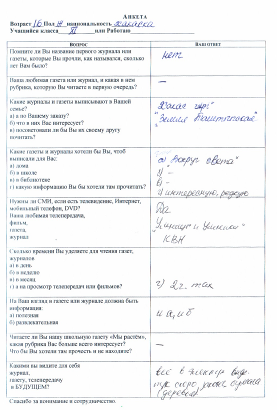 АНКЕТА
Возраст 16 Пол Ж национальность хакаска
Учащийся класса XI или Работаю
ВОПРОС
ВАШ ОТВЕТ
Помните ли Вы название первого журнала или
газеты, которые Вы прочли, как назывался, сколько
лет Вам было?
нет
Ваша любимая газета или журнал, и какая в нем
рубрика, которую Вы читаете в первую очередь?
—
Какие журналы и газеты выписывают в Вашей
семье?
а) а по Вашему заказу?
б) что в них Вас интересует?
в) посоветовали ли бы Вы их своему другу
почитать?
"Земля
Какие газеты и журналы хотели бы Вы, чтоб
выписали для Вас:
а) дома
б) в школе
в) в библиотеке
г) какую информацию Вы бы хотели там прочитать?
а) "Вокруг света"
б) —
в) —
г) интересную, редкую
Нужны ли СМИ, если есть телевидение, Интернет,
мобильный телефон, DVD?
Ваша любимая телепередача,
фильм,
газета,
журнал
Да
"Умницы и умники"
КВН
Сколько времени Вы уделяете для чтения газет,
журналов
а) в день
б) в неделю
в) в месяц
г) а на просмотр телепередач или фильмов?
г) 2 ч.
На Ваш взгляд в газете или журнале должна быть
информация:
а) полезная
б) развлекательная
и а, и б
Читаете ли Вы нашу школьную газету «Мы растём»,
какая рубрика Вас больше всего интересует?
Что бы Вы хотели там прочесть и не находите?
—
Какими вы видите для себя
журнал,
газету, телепередачу
в БУДУЩЕМ?
все в
Спасибо за понимание и сотрудничество.